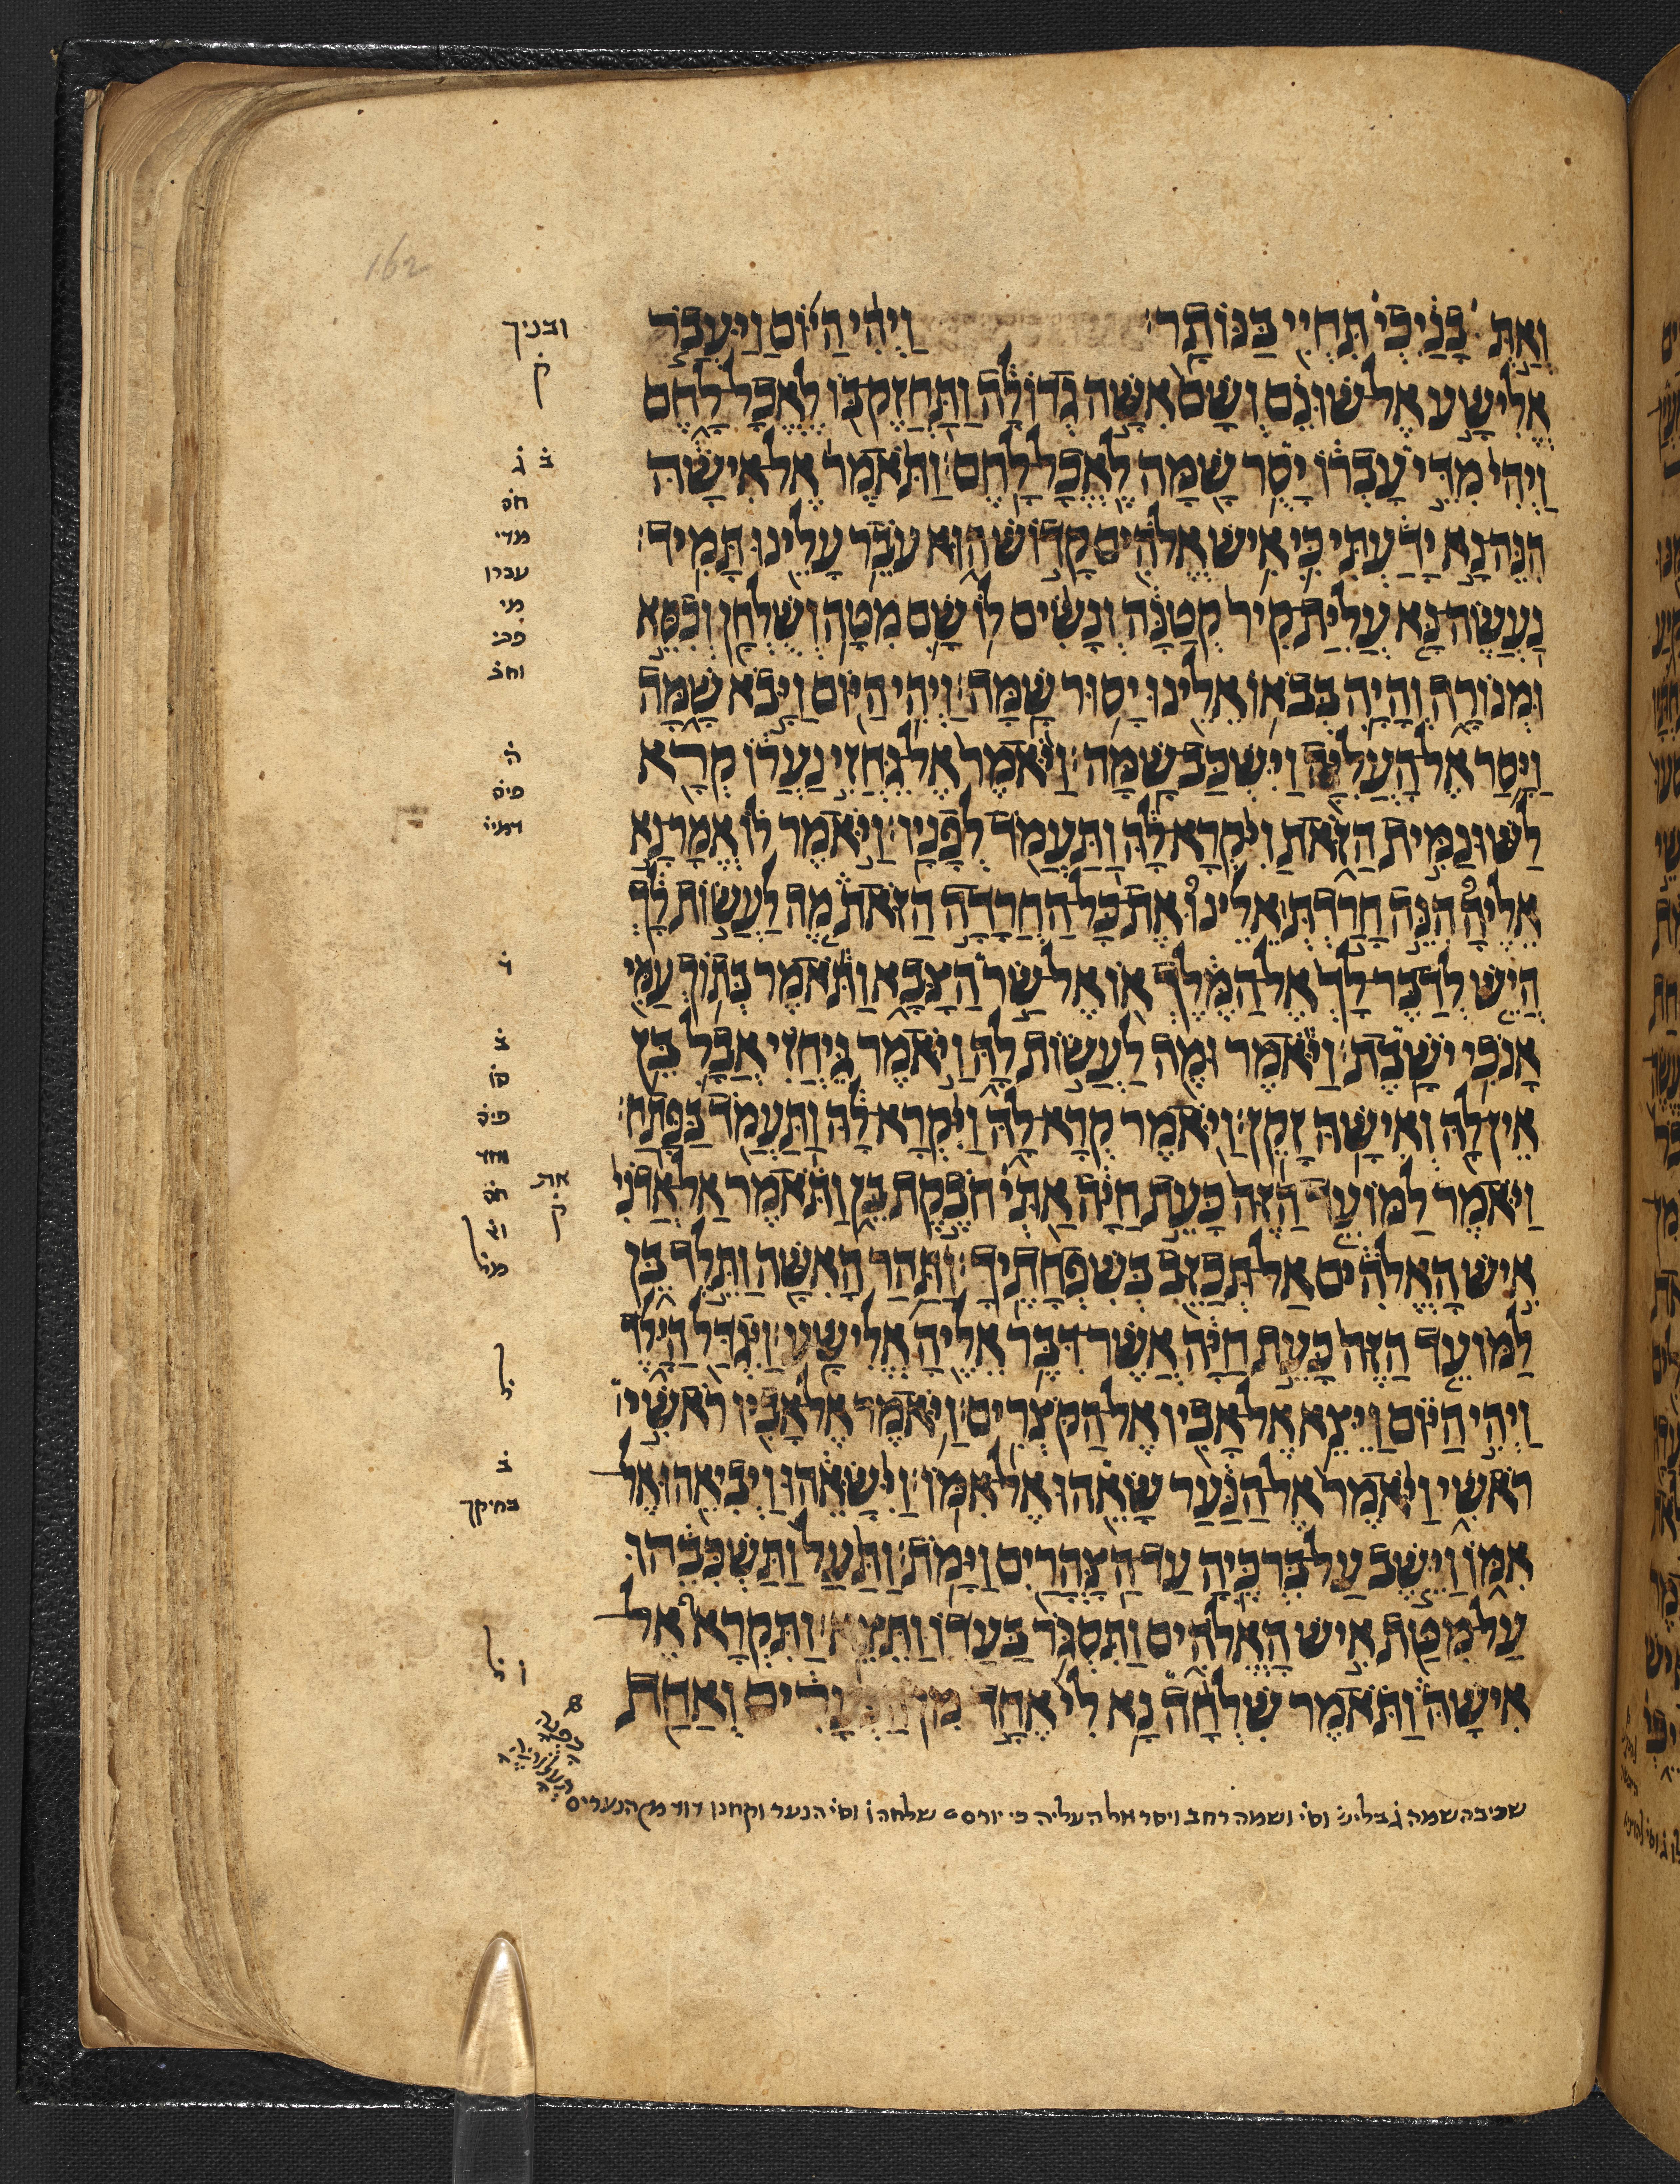 ואת בניכי תחיי בנותר: ויהי היום ויעבר
אלישע אל שונם ושם אשה גדולה ותחזק בו לאכל לחם
ויהי מדי עברו יסר שמה לאכל לחם: ותאמר אל אישה
הנה נא ידעתי כי איש אלהים קדוש הוא עבר עלינו תמיד:
נעשה נא עלית קיר קטנה ונשים לו שם מטה ושלחן וכסא
ומנורה והיה בבאו אלינו יסור שמה: ויהי היום ויבא שמה
ויסר אל העליה וישכב שמה: ויאמר אל גחזי נערו קרא
לשונמית הזאת ויקרא לה ותעמד לפניו: ויאמר לו אמר נא
אליה הנה חרדת אלינו את כל החרדה הזאת מה לעשות לך
היש לדבר לך אל המלך או אל שר הצבא ותאמר בתוך עמי
אנכי ישבת: ויאמר ומה לעשות לה ויאמר גיחזי אבל בן
אין לה ואישה זקן: ויאמר קרא לה ויקרא לה ותעמד בפתח:
ויאמר למועד הזה כעת חיה אתי חבקת בן ותאמר אל אדני
איש האלהים אל תכזב בשפחתיך: ותהר האשה ותלד בן
למועד הזה כעת חיה אשר דבר אליה אלישע: ויגדל הילד
ויהי היום ויצא אל אביו אל הקצרים: ויאמר אל אביו ראשי
ראשי ויאמר אל הנער שאהו אל אמו: וישאהו ויביאהו אל
אמו וישב על ברכיה עד הצהרים וימת: ותעל ותשכבהו
על מטת איש האלהים ותסגר בעדו ותצא: ותקרא אל
אישה ותאמר שלחה נא לי אחד מן הנערים ואחת
ובניך
ק
ב ג
חס
מדי
עברו
ה
ד
ב
את
ק
חס
ל
ב
בחיקך
ו ל
שכיבה שמה ג בליש וסי ושמה רחב ויסר אל העליה שלחה ו וסי הנער וקחנו דוד מן הנערים
162